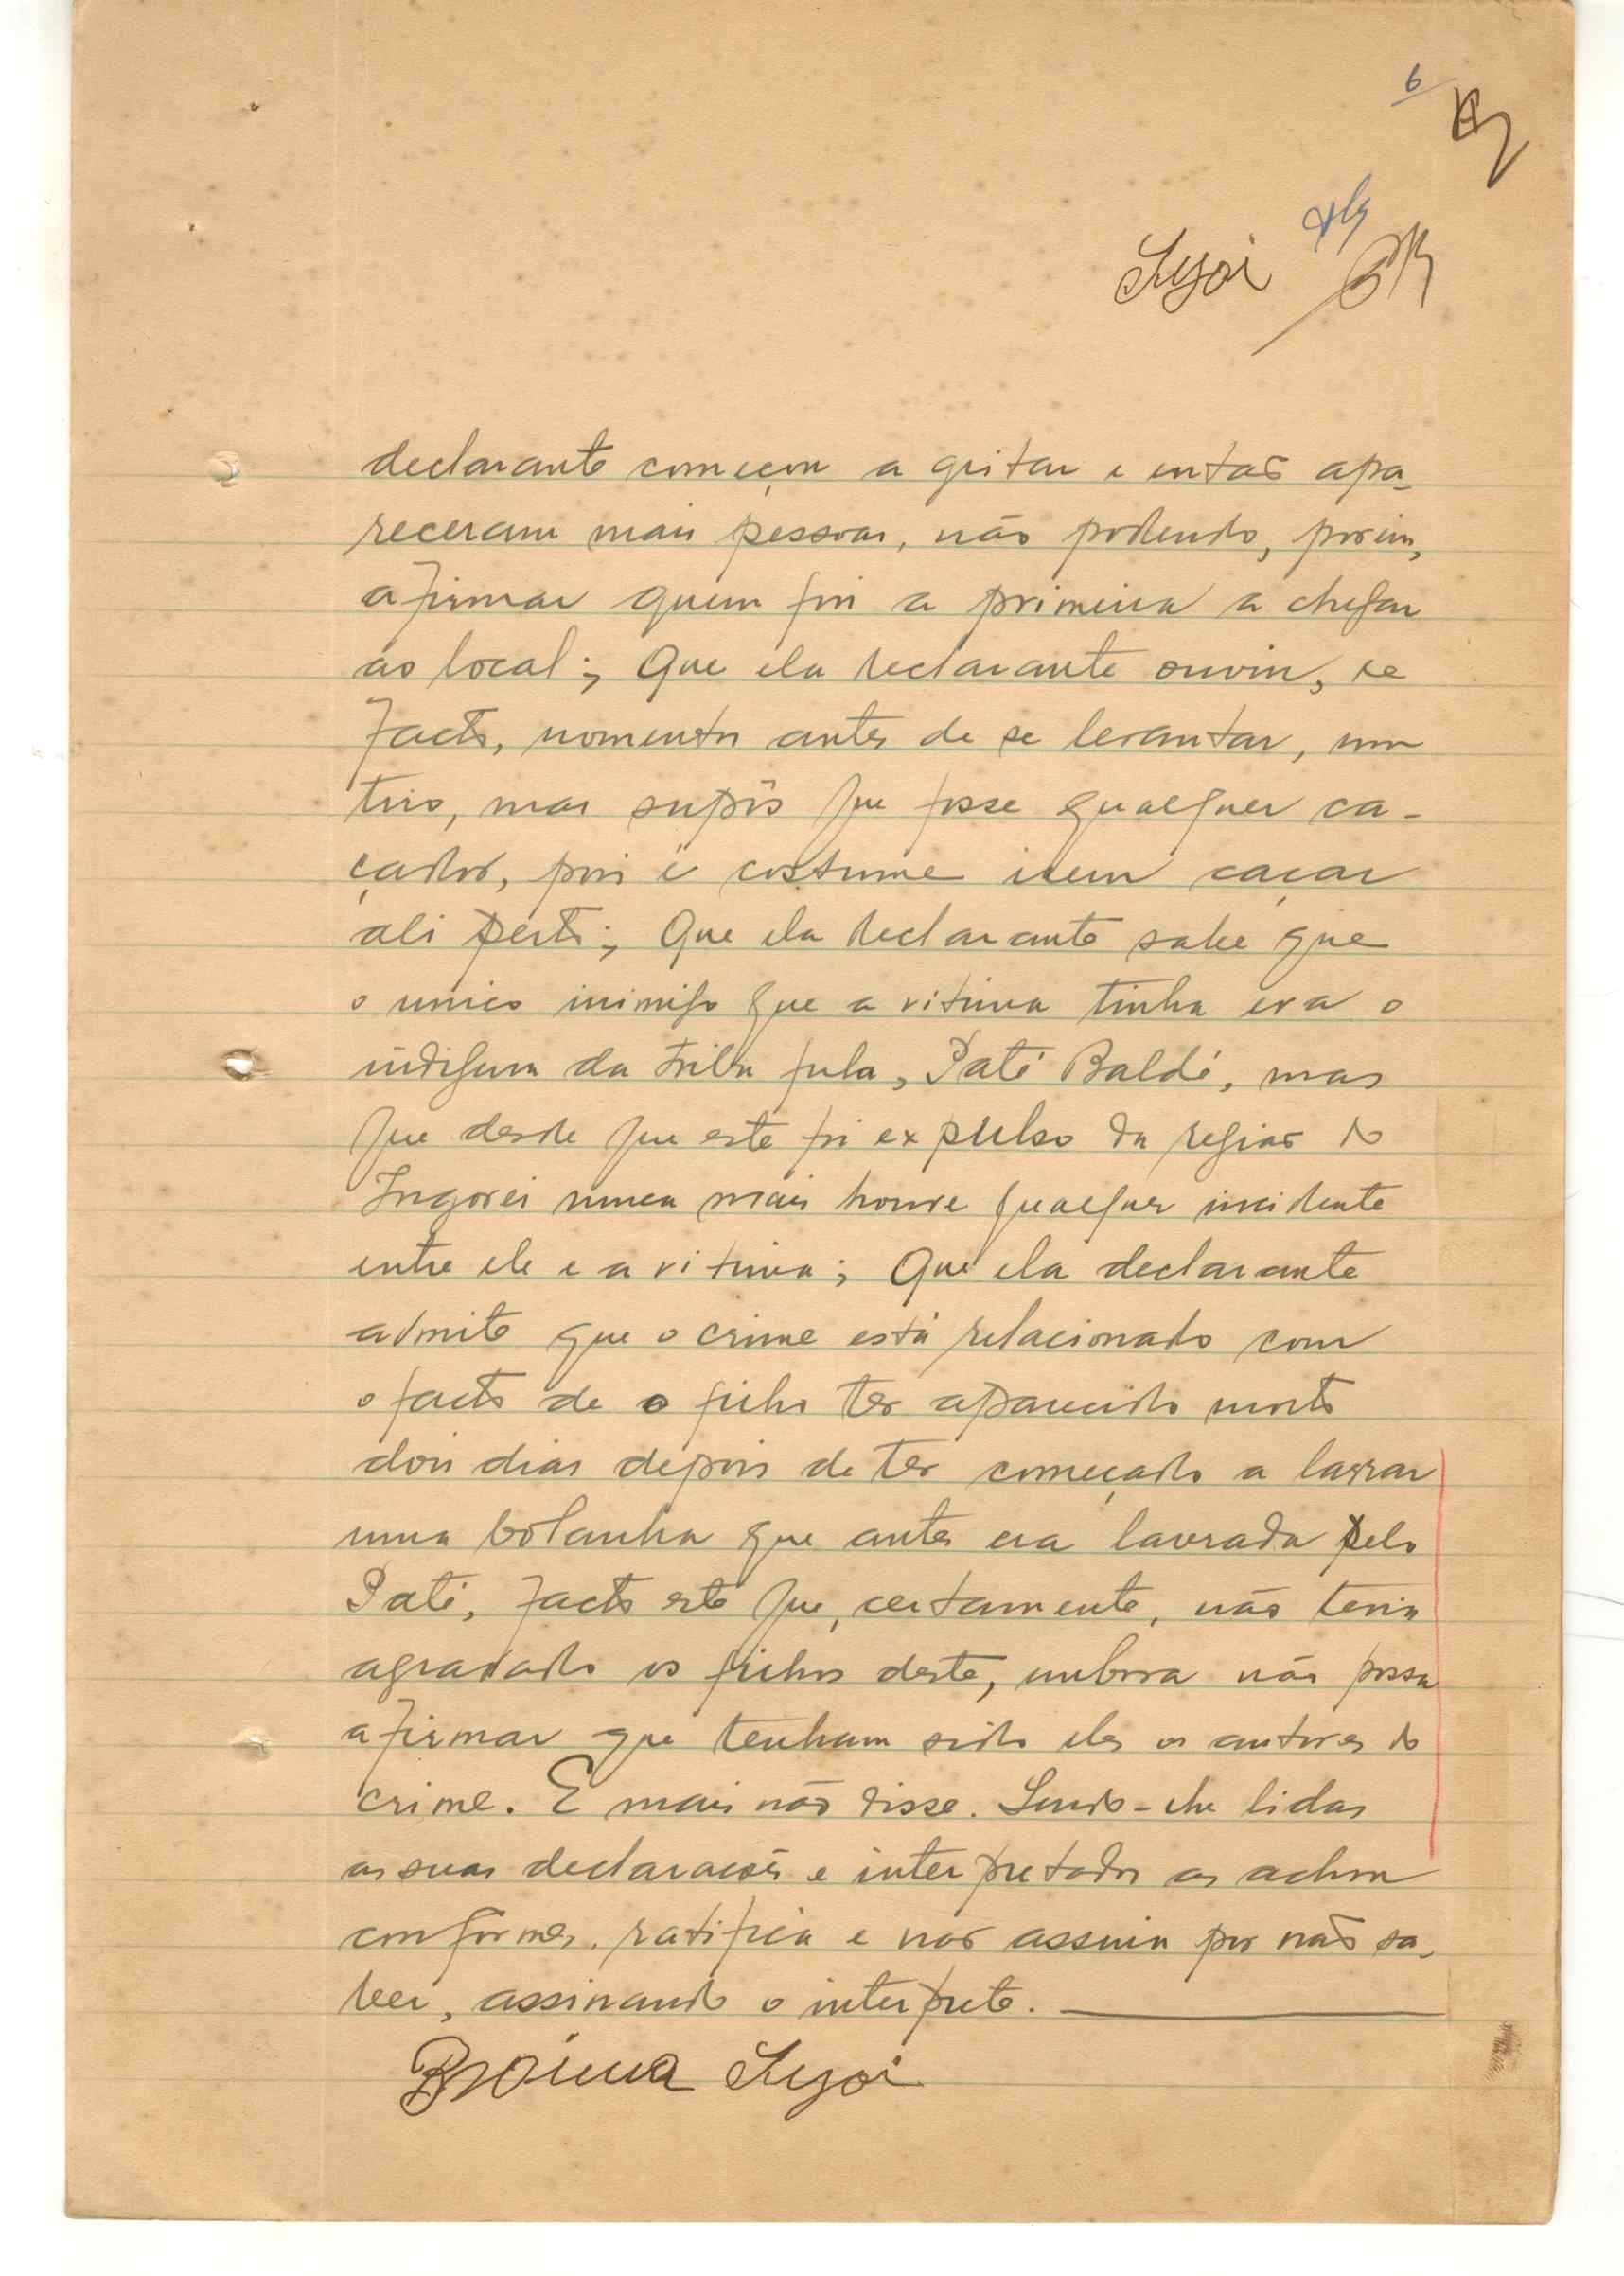 6
Sysoi
declarante começou a gritar e então apa-
receram mais pessoas, não podendo, porem,
afirmar quem foi a primeira a chegar
ao local; Que ela declarante ouviu, de
facto, momentos antes de se levantar, um
tiro, mas supôs que fosse qualquer ca-
çador, pois é costume irem caçar
ali perto; Que ela declarante sabe que
o unico inimigo que a vitima tinha era o
indigena da tribu fula, Paté Baldé, mas
que desde que este foi expulso da região do
Ingorei nunca mais houve qualquer incidente
entre ele e a vitima; Que ela declarante
admite que o crime está relacionado com
o facto de o filho ter aparecido morto
dois dias depois de ter começado a lavrar
uma bolanha que antes era lavrada pelo
Paté, facto este que, certamente, não teria
agradado os filhos deste, embora não possa
afirmar que tenham sido eles os autores do
crime. E mais não disse. Sendo-lhe lidas
as suas declarações e interpretadas as achou
conformes, ratifica e não assina por não sa-
ber, assinando o interprete.
Braima Sysoi